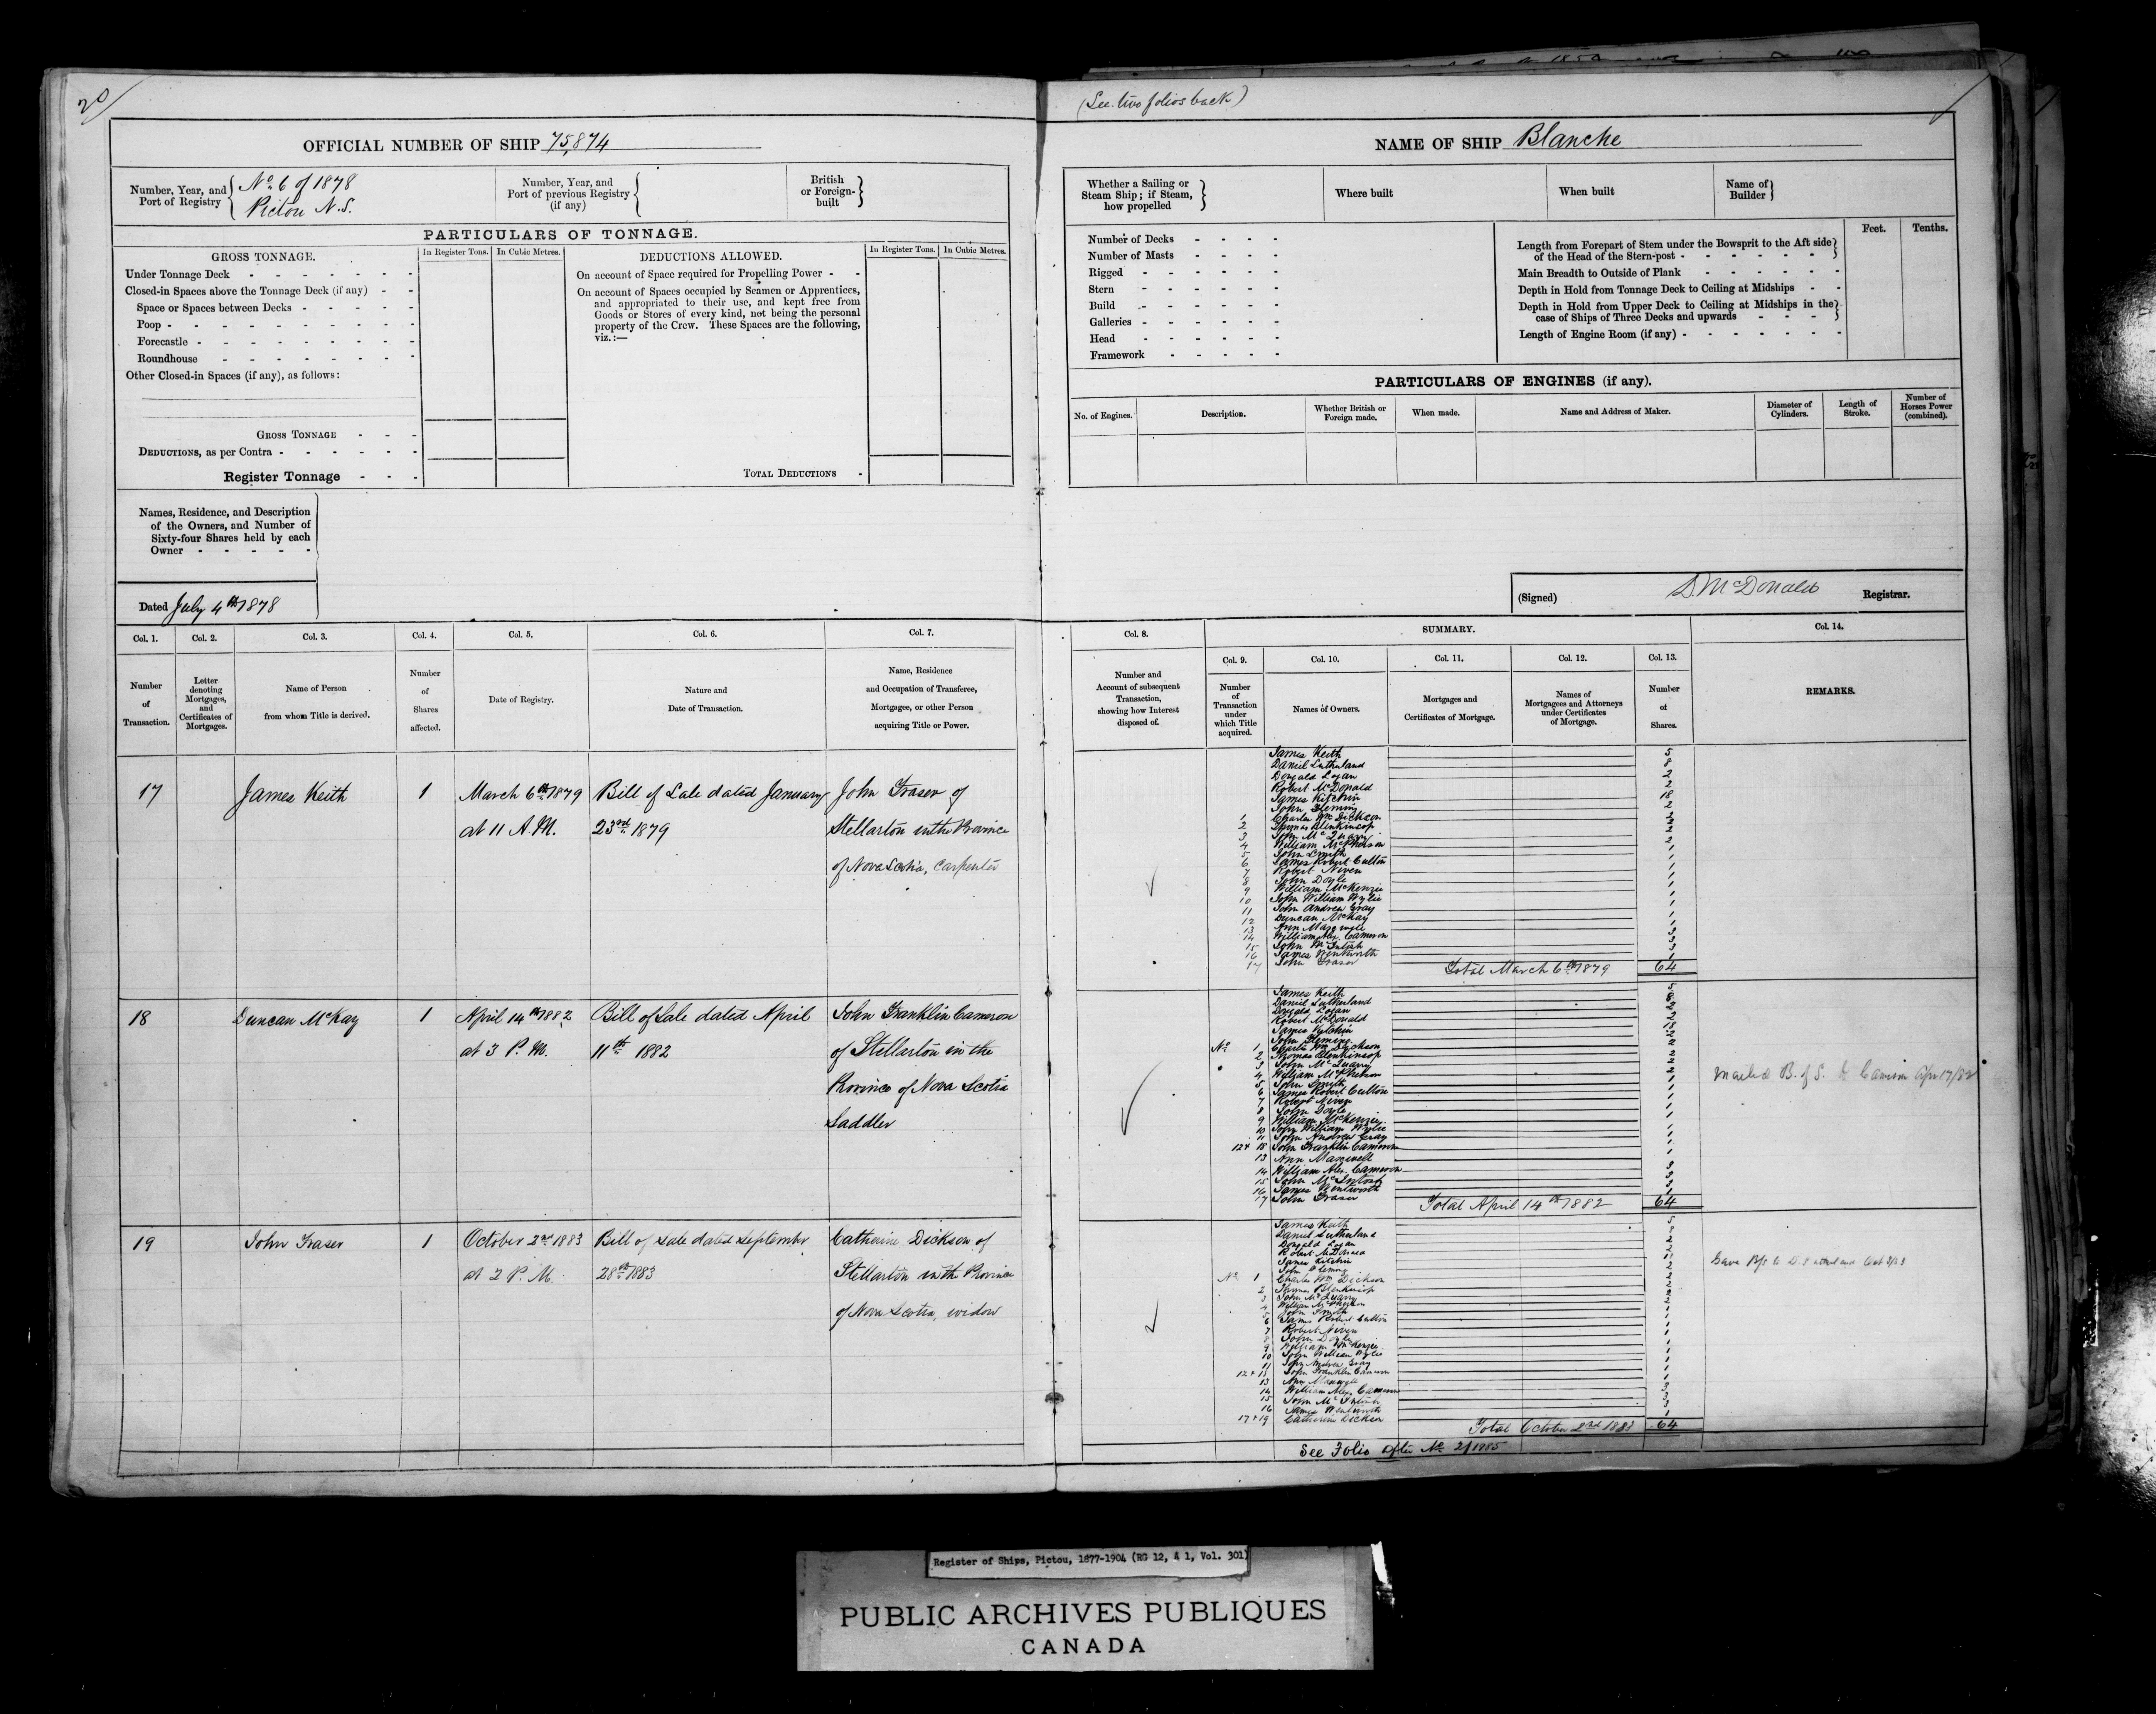 20/
(See two folios back)
OFFICIAL NUMBER OF SHIP 75,874
NAME OF SHIP Blanche
Number, Year, and Port of Registry { No. 6 of 1878
Pictou N.S.
Number, Year, and Port of previous Registry (if any) {
British or Foreign-built }
Whether a Sailing or Steam Ship; if Steam, how propelled }
Where built
When built
Name of Builder }
PARTICULARS OF TONNAGE.
GROSS TONNAGE.
In Register Tons.
In Cubic Metres.
DEDUCTIONS ALLOWED.
In Register Tons.
In Cubic Metres.
Under Tonnage Deck
Closed-in Spaces above the Tonnage Deck (if any)
Space or Spaces between Decks
Poop
Forecastle
Roundhouse
Other Closed-in Spaces (if any), as follows:
GROSS TONNAGE
DEDUCTIONS, as per Contra
Register Tonnage
On account of Space required for Propelling Power
On account of Spaces occupied by Seamen or Apprentices,
and appropriated to their use, and kept free from
Goods or Stores of every kind, not being the personal
property of the Crew. These Spaces are the following,
viz.:—
TOTAL DEDUCTIONS
Number of Decks
Number of Masts
Rigged
Stern
Build
Galleries
Head
Framework
Feet.
Tenths.
Length from Forepart of Stem under the Bowsprit to the Aft side
of the Head of the Stern-post
Main Breadth to Outside of Plank
Depth in Hold from Tonnage Deck to Ceiling at Midships
Depth in Hold from Upper Deck to Ceiling at Midships in the
case of Ships of Three Decks and upwards
Length of Engine Room (if any)
PARTICULARS OF ENGINES (if any).
No. of Engines.
Description.
Whether British or Foreign made.
When made.
Name and Address of Maker.
Diameter of Cylinders.
Length of Stroke.
Number of Horses Power (combined).
Names, Residence, and Description
of the Owners, and Number of
Sixty-four Shares held by each
Owner
Dated July 4th 1878
(Signed) D. McDonald Registrar.
Col. 1.
Number of Transaction.
Col. 2.
Letter denoting Mortgages, and Certificates of Mortgages.
Col. 3.
Name of Person from whom Title is derived.
Col. 4.
Number of Shares affected.
Col. 5.
Date of Registry.
Col. 6.
Nature and Date of Transaction.
Col. 7.
Name, Residence and Occupation of Transferee, Mortgagee, or other Person acquiring Title or Power.
Col. 8.
Number and Account of subsequent Transaction, showing how Interest disposed of.
SUMMARY.
Col. 9.
Number of Transaction under which Title acquired.
Col. 10.
Names of Owners.
Col. 11.
Mortgages and Certificates of Mortgage.
Col. 12.
Names of Mortgagees and Attorneys under Certificates of Mortgage.
Col. 13.
Number of Shares.
Col. 14.
REMARKS.
17 James Keith 1 March 6th 1879 Bill of Sale dated January John Fraser of
at 11 A.M. 23rd 1879 Stellarton in the Province
of Nova Scotia, Carpenter
James Keith 5
Daniel Sutherland 8
Donald Logan 2
Robert McDonald 2
James Kitchin 18
John Fleming 2
1 Charles Wm Dickson
2 Thomas Blenkinsop
3 John McQuarry
4 William McPherson
5 John Smith
6 James Robert Cutton
7 Robert Niven
8 John Doyle
9 William McKenzie
10 John William Wylie
11 John Andrew Gray
12 Duncan McKay
13 Ann Maxwell
14 William Alex. Cameron
15 John McIntosh
16 James Wentworth
17 John Fraser
Total March 6th 1879 64
18 Duncan McKay 1 April 14th 1882 Bill of Sale dated April John Franklin Cameron
at 3 P.M. 11th 1882 of Stellarton in the
Province of Nova Scotia
Saddler
James Keith 5
Daniel Sutherland
Donald Logan
Robert McDonald
James Kitchin
John Fleming
No. 1 Charles Wm Dickson
2 Thomas Blenkinsop
3 John McQuarry
4 William McPherson
5 John Smith
6 James Robert Cutton
7 Robert Niven
8 John Doyle
9 William McKenzie
10 John William Wylie
11 John Andrew Gray
12+18 John Franklin Cameron
13 Ann Maxwell
14 William Alex. Cameron
15 John McIntosh
16 James Wentworth
17 John Fraser
Total April 14th 1882 64
Mailed B. of S. to Cameron Apr 17/82
19 John Fraser 1 October 2nd 1883 Bill of Sale dated September Catherine Dickson of
at 2 P.M. 28th 1883 Stellarton in the Province
of Nova Scotia, widow
James Keith 5
Daniel Sutherland
Donald Logan
Robert McDonald
James Kitchin
John Fleming
No. 1 Charles Wm Dickson
2 Thomas Blenkinsop
3 John McQuarry
4 William McPherson
5 John Smith
6 James Robert Cutton
7 Robert Niven
8 John Doyle
9 William McKenzie
10 John William Wylie
11 John Andrew Gray
12+18 John Franklin Cameron
13 Ann Maxwell
14 William Alex. Cameron
15 John McIntosh
16 James Wentworth
17+19 Catherine Dickson
Total October 2nd 1883 64
Gave B/S to D. Oct
See Folio after No. 2/1885
Register of Ships, Pictou, 1877-1904 (RG 12, A 1, Vol. 301)
PUBLIC ARCHIVES PUBLIQUES
CANADA